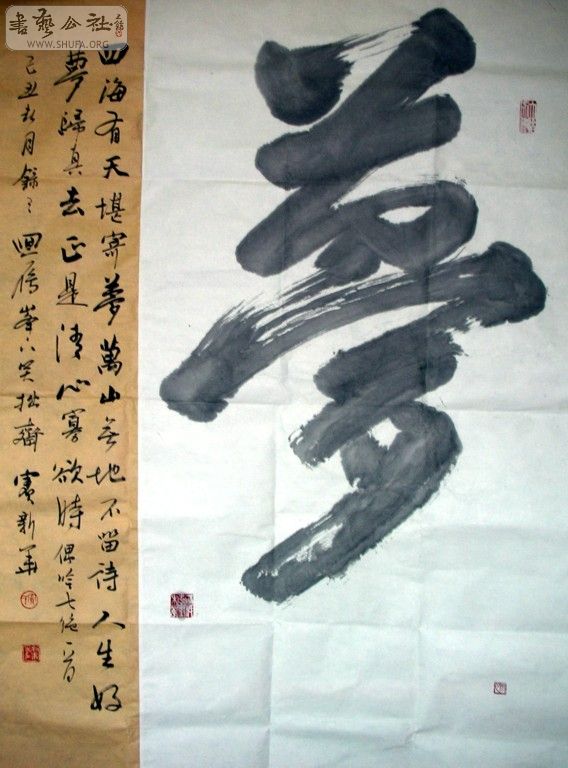 書藝公社
WWW.SHUFA.ORG
夢
四海有天堪寄夢萬山無地不留詩人生好
夢歸真去正是清心寡欲時偶吟七絕一首
己丑秋月錄之回雁峯下笑拙齋新華